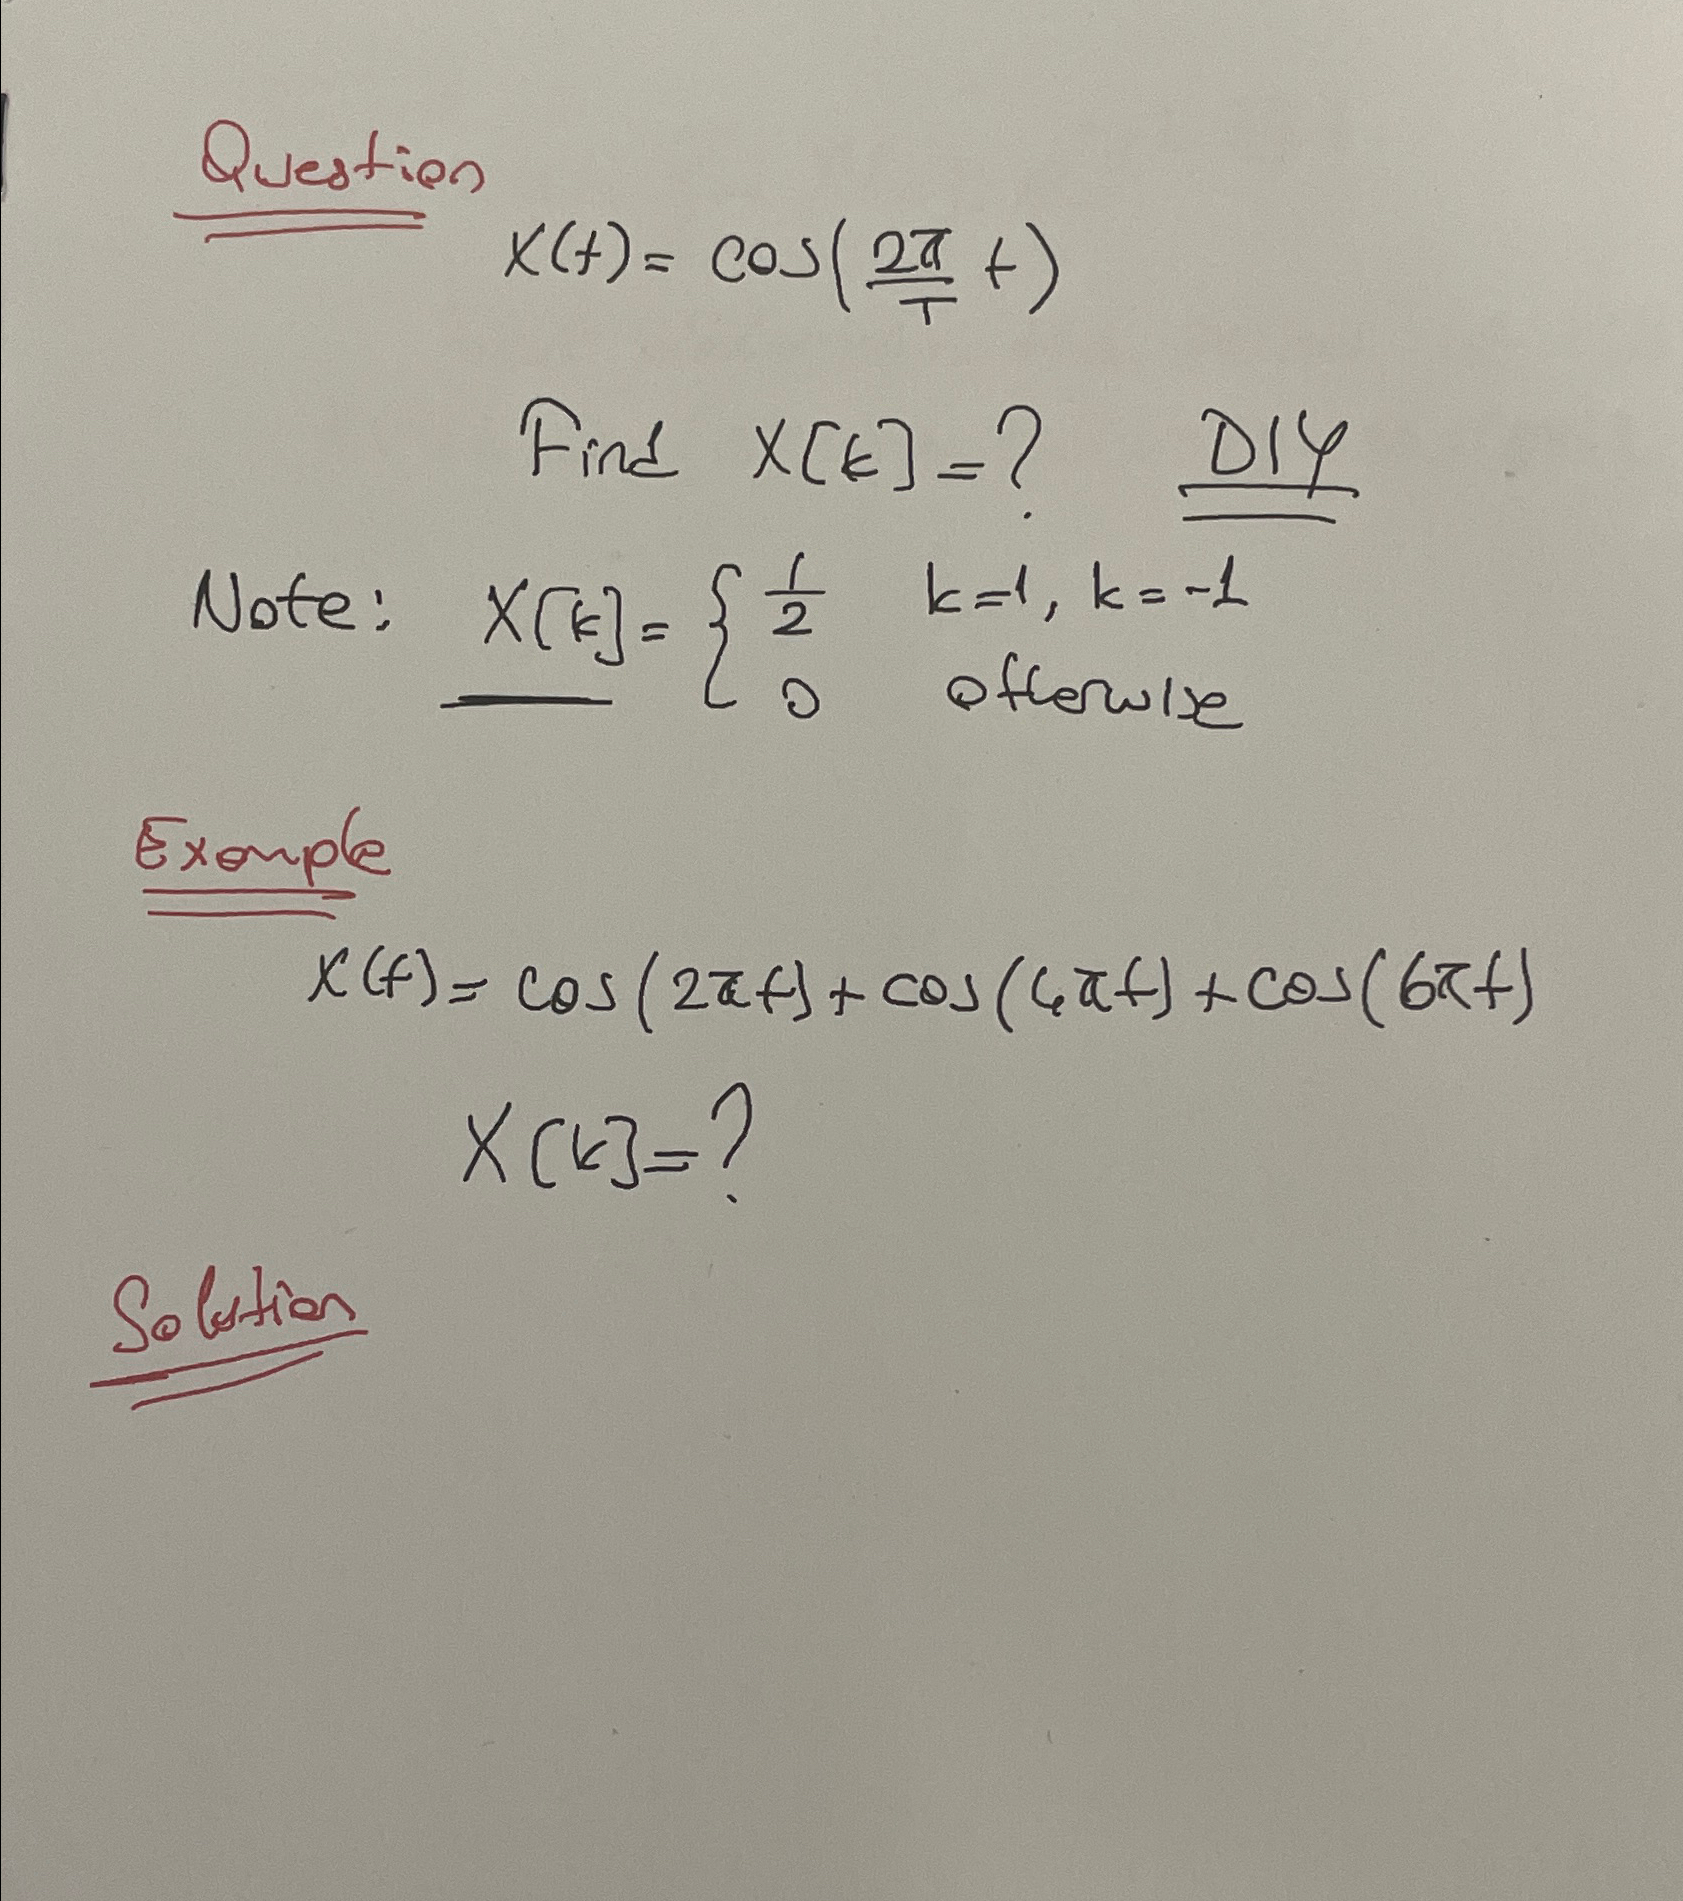 Question
x(t) = cos(2π/T t)
Find X[k] = ? DIY
Note: X[k] = { 1/2 k=1, k=-1
0 otherwise
Example
x(t) = cos(2πt) + cos(4πt) + cos(6πt)
X[k] = ?
Solution